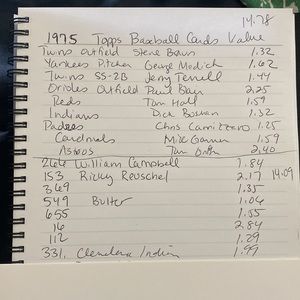 14.78
1975 Topps Baseball Cards Value
Twins Outfield Steve Braun 1.32
Yankees Pitcher George Medich 1.62
Twins SS-2B Jerry Terrell 1.44
Orioles Outfield Paul Blair 2.25
Reds Tom Hall 1.59
Indians Dick Bosman 1.32
Padres Chris 1.25
Cardinals Mike 1.59
Astros 2.40
266 William Campbell 1.84
153 Ricky Reuschel 2.17 14.09
369 1.35
549 Butler 1.06
655 1.55
16 2.84
112 1.29
331. Cleveland Indian 1.99